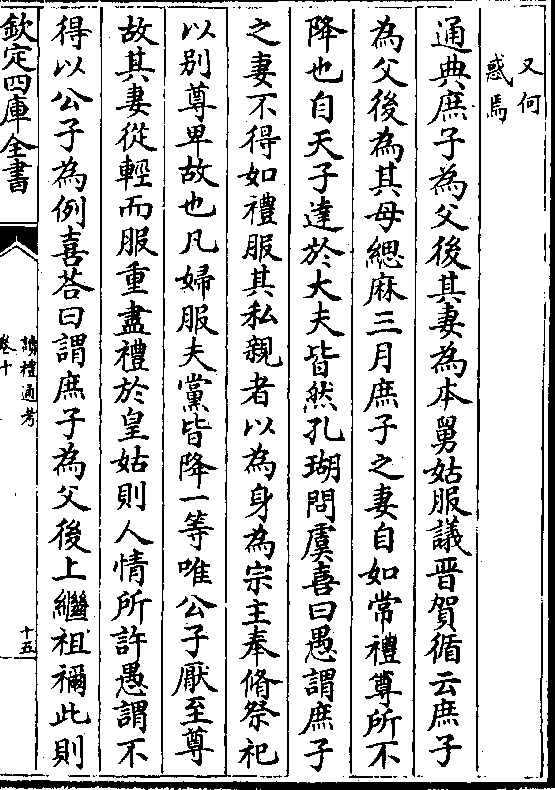 又何
惑焉
通典庶子為父後其妻為本舅姑服議晋賀循云庶子
為父後為其母緦麻三月庶子之妻自如常禮尊所不
降也自天子達於大夫皆然孔瑚問虞喜曰愚謂庶子
之妻不得如禮服其私親者以為身為宗主奉脩祭祀
以别尊卑故也凡婦服夫黨皆降一等唯公子厭至尊
故其妻從輕而服重盡禮於皇姑則人情所許愚謂不
得以公子為例喜荅曰謂庶子為父後上繼祖禰此則
欽定四庫全書
讀禮通考
卷十
十五